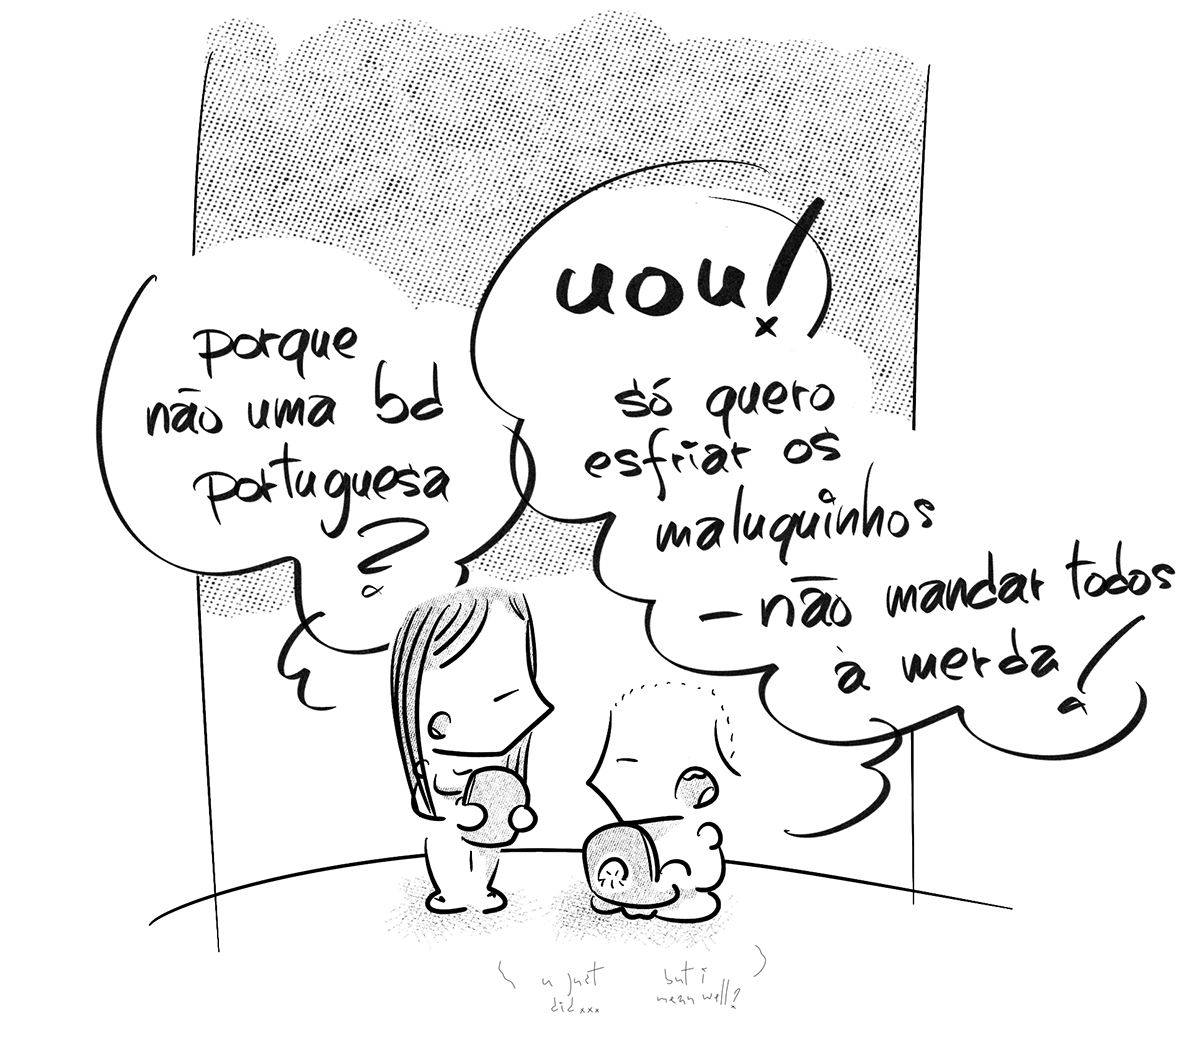 porque
não uma bd
portuguesa
?
uou!
só quero
esfriar os
maluquinhos
- não mandar todos
à merda!
( u just
did xxx
but i )
mean well?